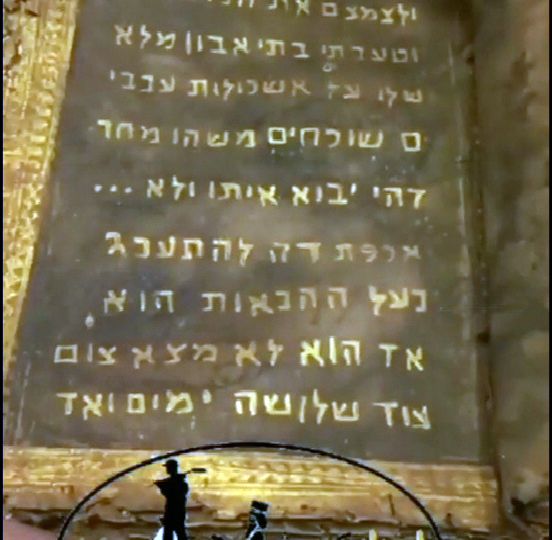 ולצמצם את
וטערתי בתי אבון מלא
שלו על אשכולות ענבי
ם שוכחים משהו מחר
דהי יבוא איתו ולא ...
אכפת דה להתענג
בעל ההנאות הוא
אד הוא לא מצא צום
צוד שלושה ימים ואד